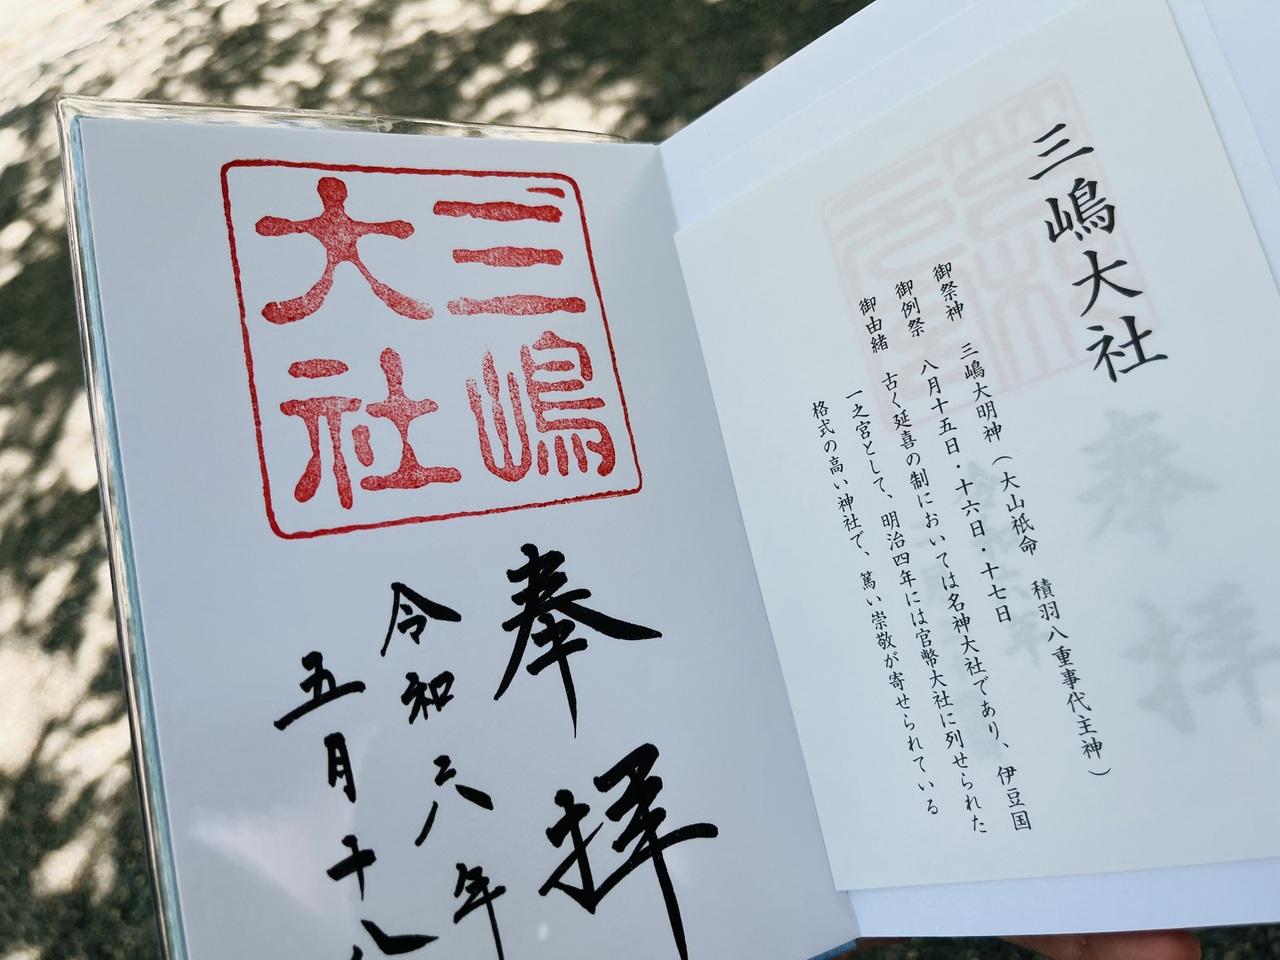 三嶋
大社
奉拝
令和六年
五月十八
三嶋大社
御祭神　三嶋大明神（大山祇命　積羽八重事代主神）
御例祭　八月十五日・十六日・十七日
御由緒　古く延喜の制においては名神大社であり、伊豆国
一之宮として、明治四年には官幣大社に列せられた
格式の高い神社で、篤い崇敬が寄せられている